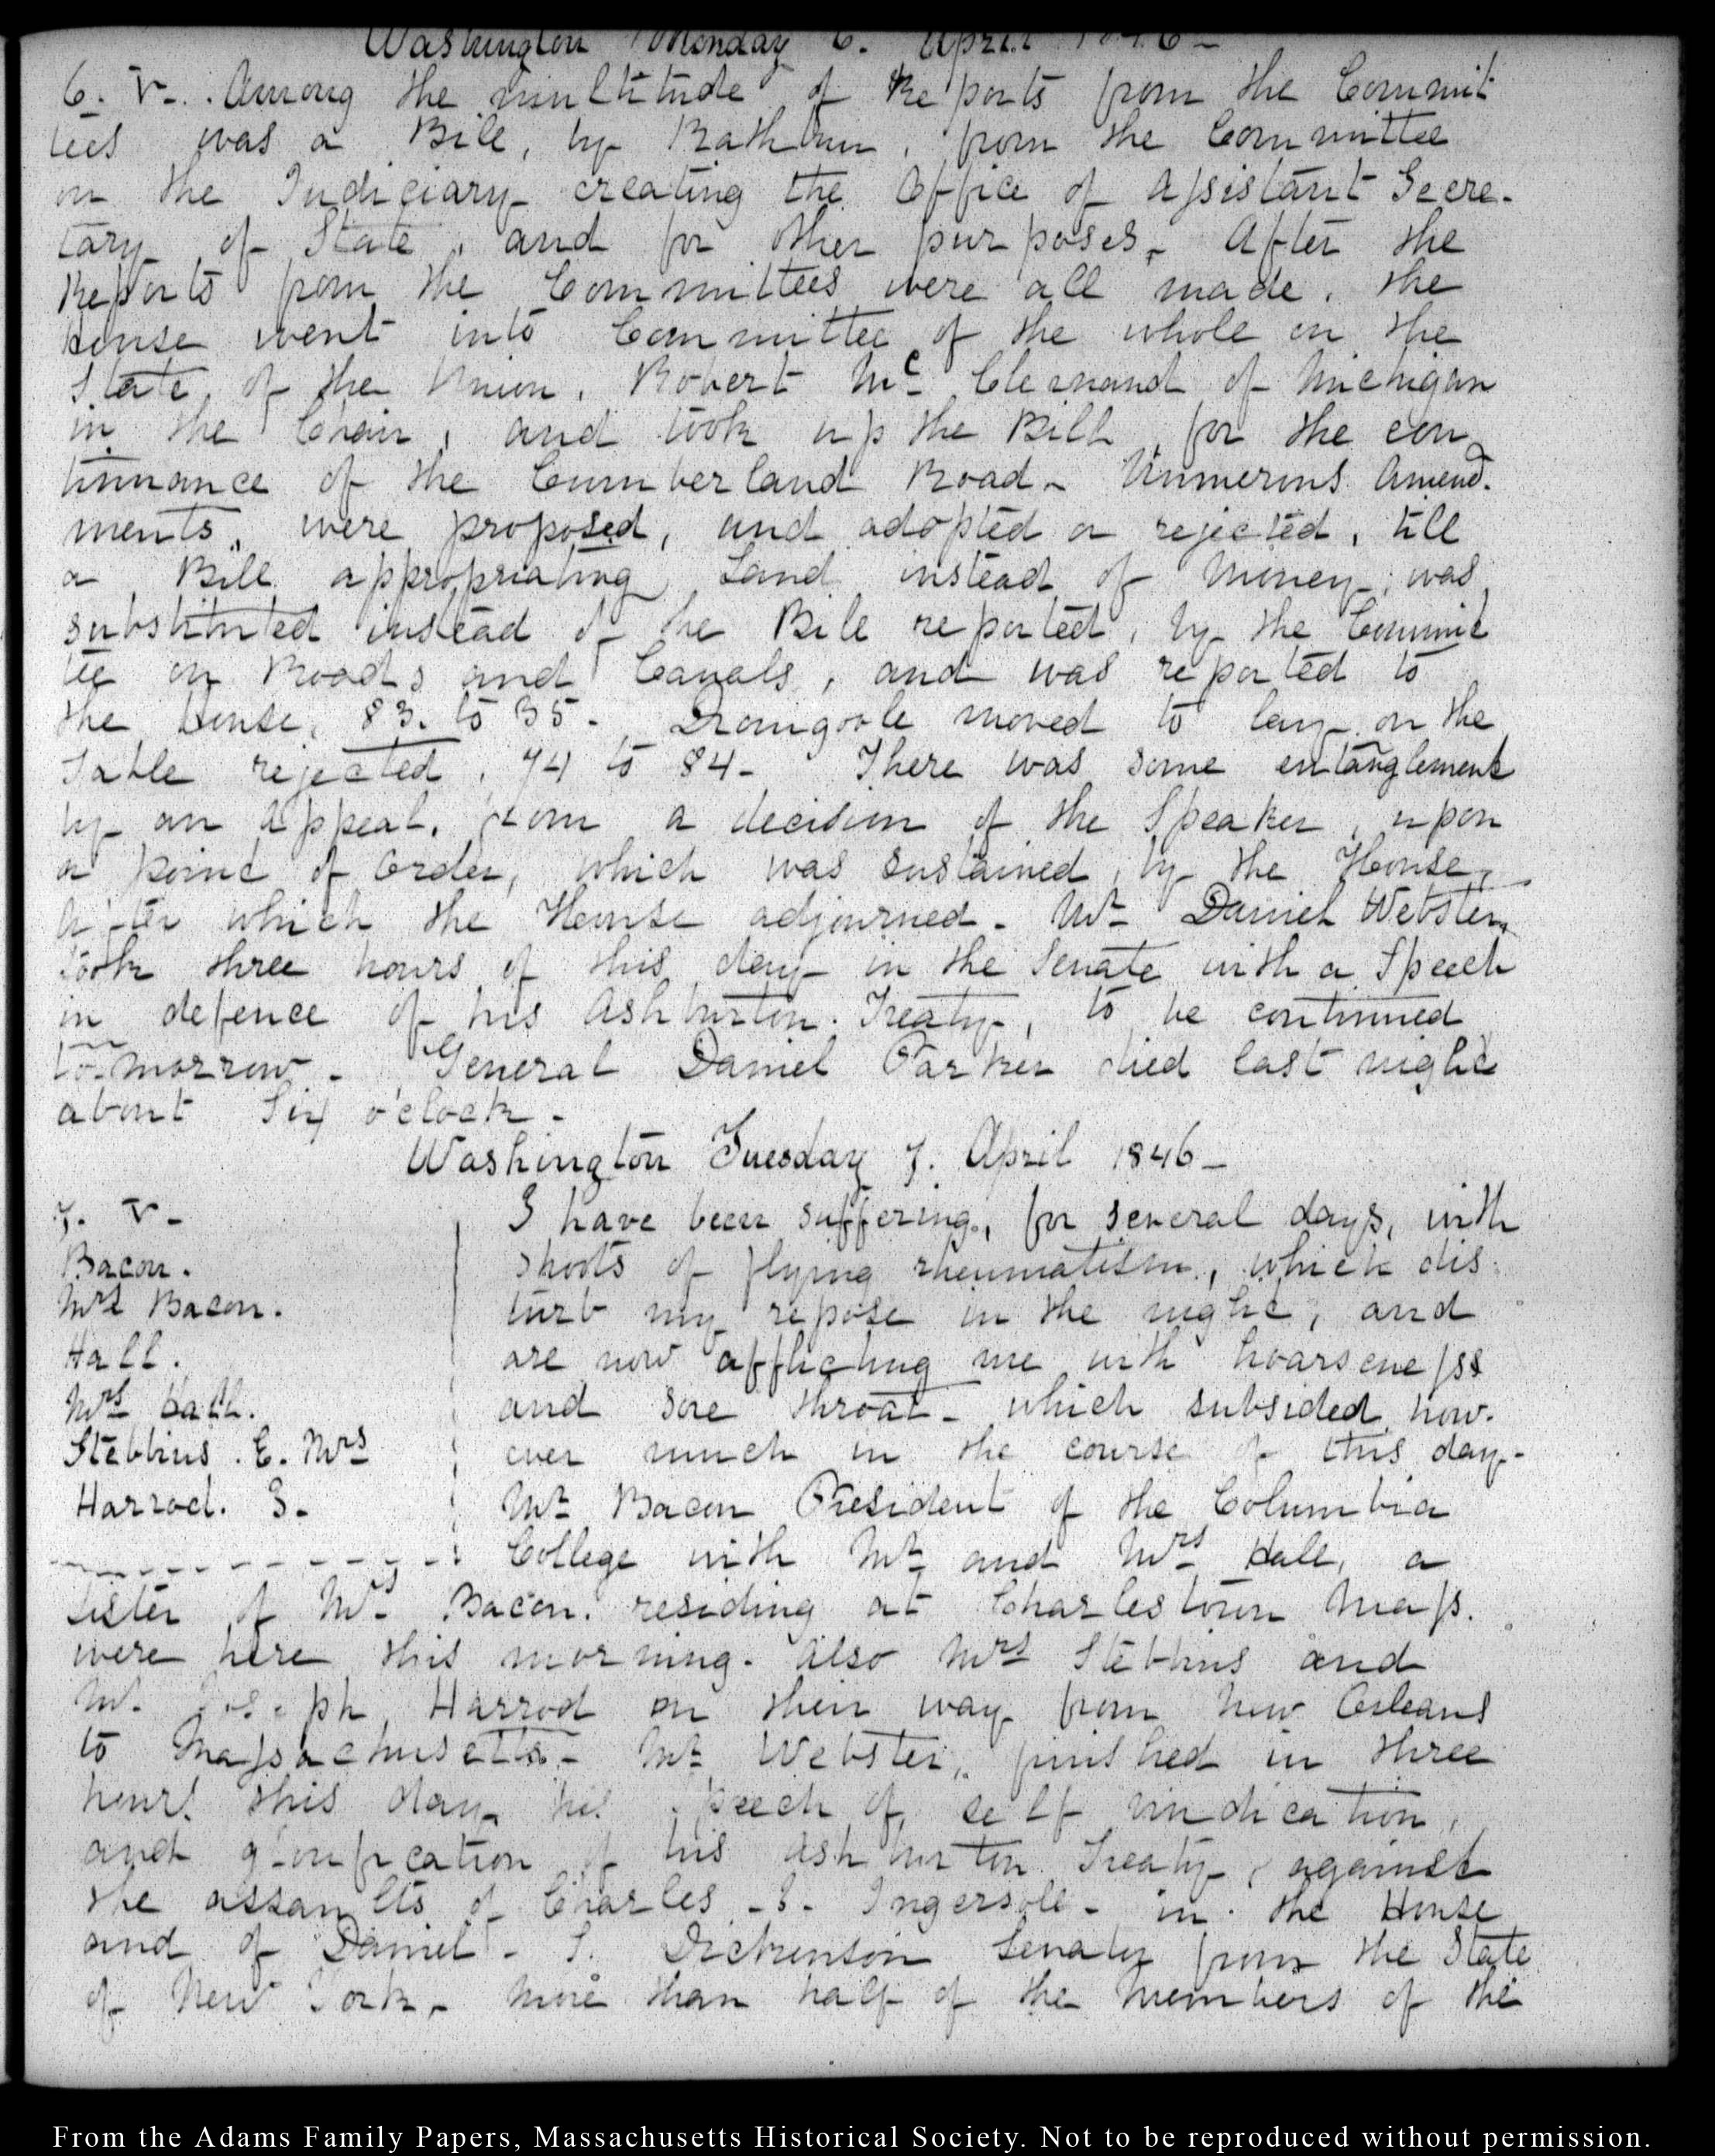 Washington Monday 6. April 1846-
6. V-. Among the multitude of Reports from the Commit
tees was a Bill, by Rathbun, from the Committee
on the Judiciary creating the Office of assistant Secre-
tary of State, and for other purposes- After the
Reports from the Committees were all made, the
House went into Committee of the whole on the
State of the Union, Robert McClernand of Michigan
in the Chair, and took up the Bill, for the con
tinuance of the Cumberland Road- Numerous Amend-
ments, were proposed, and adopted or rejected, till
a Bill appropriating Land instead of Money, was
substituted instead of the Bill reported, by the Commit
tee on Roads and Canals, and was reported to
the House, 83. to 35- Dromgoole moved to lay on the
Table rejected, 74 to 84- There was some entanglement
by an Appeal, from a decision of the Speaker, upon
a point of Order, which was sustained, by the House,
After which the House adjourned- Mr Daniel Webster,
took three hours of this day in the Senate with a Speech
in defence of his Ashburton Treaty, to be continued
to-morrow- General Daniel Parker died last night
about Six o'clock-
Washington Tuesday 7. April 1846-
7. V-
Bacon.
Mrs Bacon.
Hall.
Mrs Hall.
Stebbins. E. Mrs
Harrod. S-
I have been suffering, for several days, with
shoots of flying rheumatism, which dis
turb my repose in the night, and
are now afflicting me with hoarseness
and sore throat- which subsided how-
ever much in the course of this day-
Mr Bacon President of the Columbia
College with Mr and Mrs Hall, a
sister of Mrs Bacon. residing at Charlestown Mass.
were here this morning- also Mrs Stebbins and
Mr Joseph Harrod on their way from New Orleans
to Massachusetts- Mr Webster, finished in three
hours this day his speech of self vindication,
and glorification of his Ashburton Treaty, against
the assaults of Charles J. Ingersoll- in the House
and of Daniel- S. Dickinson Senator from the State
of New York- More than half of the Members of the
From the Adams Family Papers, Massachusetts Historical Society. Not to be reproduced without permission.